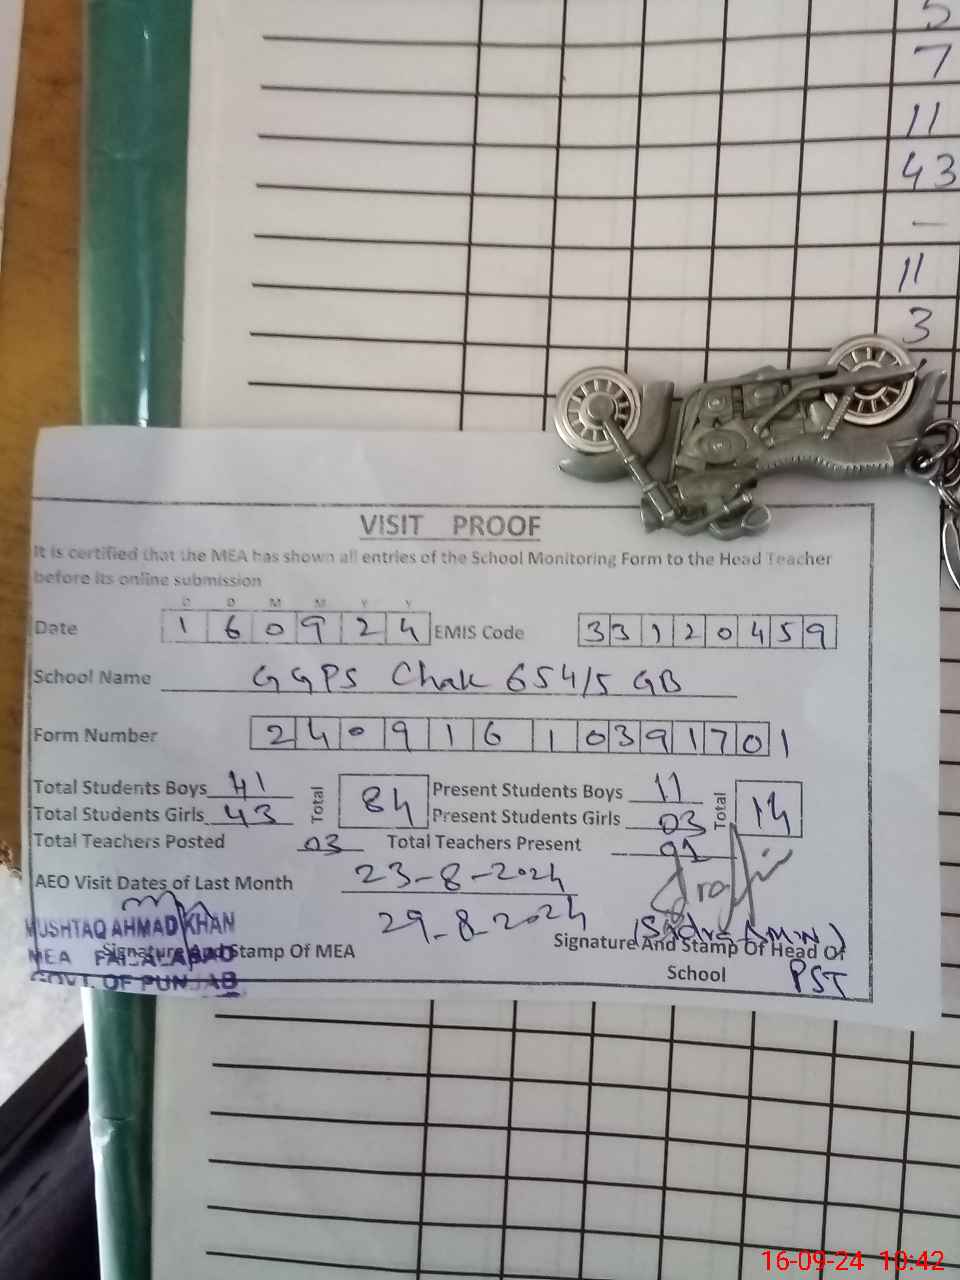 5
7
11
43
-
11
3
VISIT PROOF
It is certified that the MEA has shown all entries of the School Monitoring Form to the Head Teacher
before its online submission
D D M M Y Y
Date 1 6 0 9 2 4 EMIS Code 3 3 1 2 0 4 5 9
School Name GGPS Chak 654/5 GB
Form Number 2 4 0 9 1 6 1 0 3 9 1 7 0 1
Total Students Boys 41 Total 84 Present Students Boys 11 Total 14
Total Students Girls 43 Present Students Girls 03
Total Teachers Posted 03 Total Teachers Present
AEO Visit Dates of Last Month 23-8-2024
29-8-2024
MUSHTAQ AHMAD KHAN
MEA FAISALABAD
GOVT. OF PUNJAB
Signature And Stamp Of MEA
Signature And Stamp Of Head Of
School
PST
16-09-24 10:42